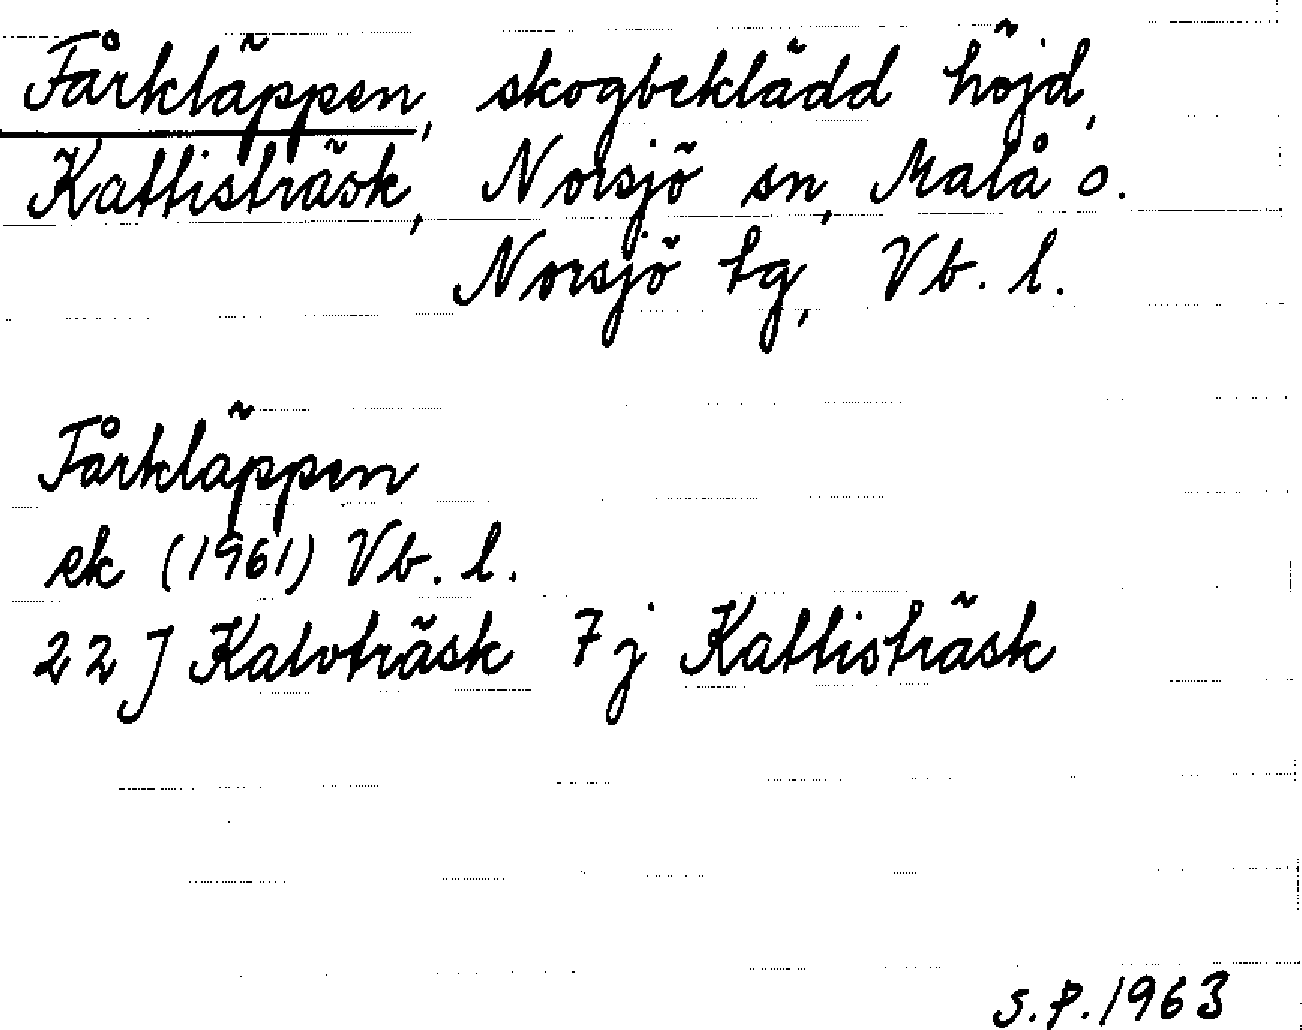 Fårkläppen, skogbeklädd höjd,
Kattisträsk, Norsjö sn, Malå o.
Norsjö tg, Vb. l.
Fårkläppen
ek (1961) Vb. l.
22 J Kalvträsk 7j Kattisträsk
S.P. 1963